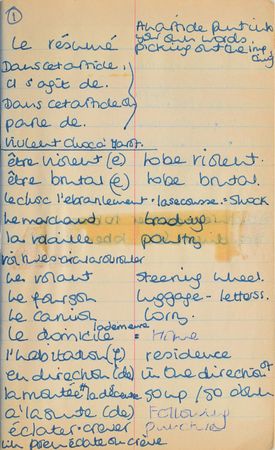 ①
Le résumé An article put into your own words. picking out the imp
Dans cet article,
il s'agit de.
Dans cet article on
parle de.
violent choc à
être violent (e) to be violent.
être brutal (e) to be brutal.
le choc l'ébranlement · la secousse · shock
Le marchand trading
la volaille poultry
Le volant steering wheel.
Le fourgon luggage - letters.
Le camion lorry.
Le domicile la demeure Home
l'habitation (f) residence
en direction (de) in the direction of
la montée la descente go up / go down
à la suite (de) Following
éclater - crever puncture
un pneu éclate ou crève